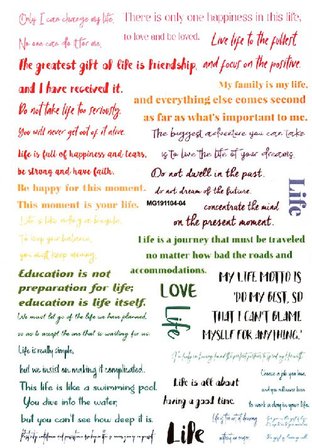 Only I can change my life,
No one can do it for me.
There is only one happiness in this life,
to love and be loved.
Live life to the fullest,
and focus on the positive.
The greatest gift of life is friendship,
and I have received it.
My family is my life,
and everything else comes second
as far as what's important to me.
Do not take life too seriously.
You will never get out of it alive.
The biggest adventure you can take
is to live the life of your dreams.
life is full of happiness and tears,
be strong and have faith.
Do not dwell in the past.
do not dream of the future.
concentrate the mind
on the present moment.
Life
Be happy for this moment.
This moment is your life.
MG191104-04
Life is like riding a bicycle.
To keep your balance,
you must keep moving.
Life is a journey that must be traveled
no matter how bad the roads and
accommodations.
Education is not
preparation for life;
education is life itself.
LOVE
Life
MY LIFE MOTTO IS
'DO MY BEST, SO
THAT I CAN'T BLAME
MYSELF FOR ANYTHING.'
We must let go of the life we have planned,
so as to accept the one that is waiting for us.
Life is really simple,
but we insist on making it complicated.
This life is like a swimming pool.
You dive into the water,
but you can't see how deep it is.
Life is all about
having a good time.
Life